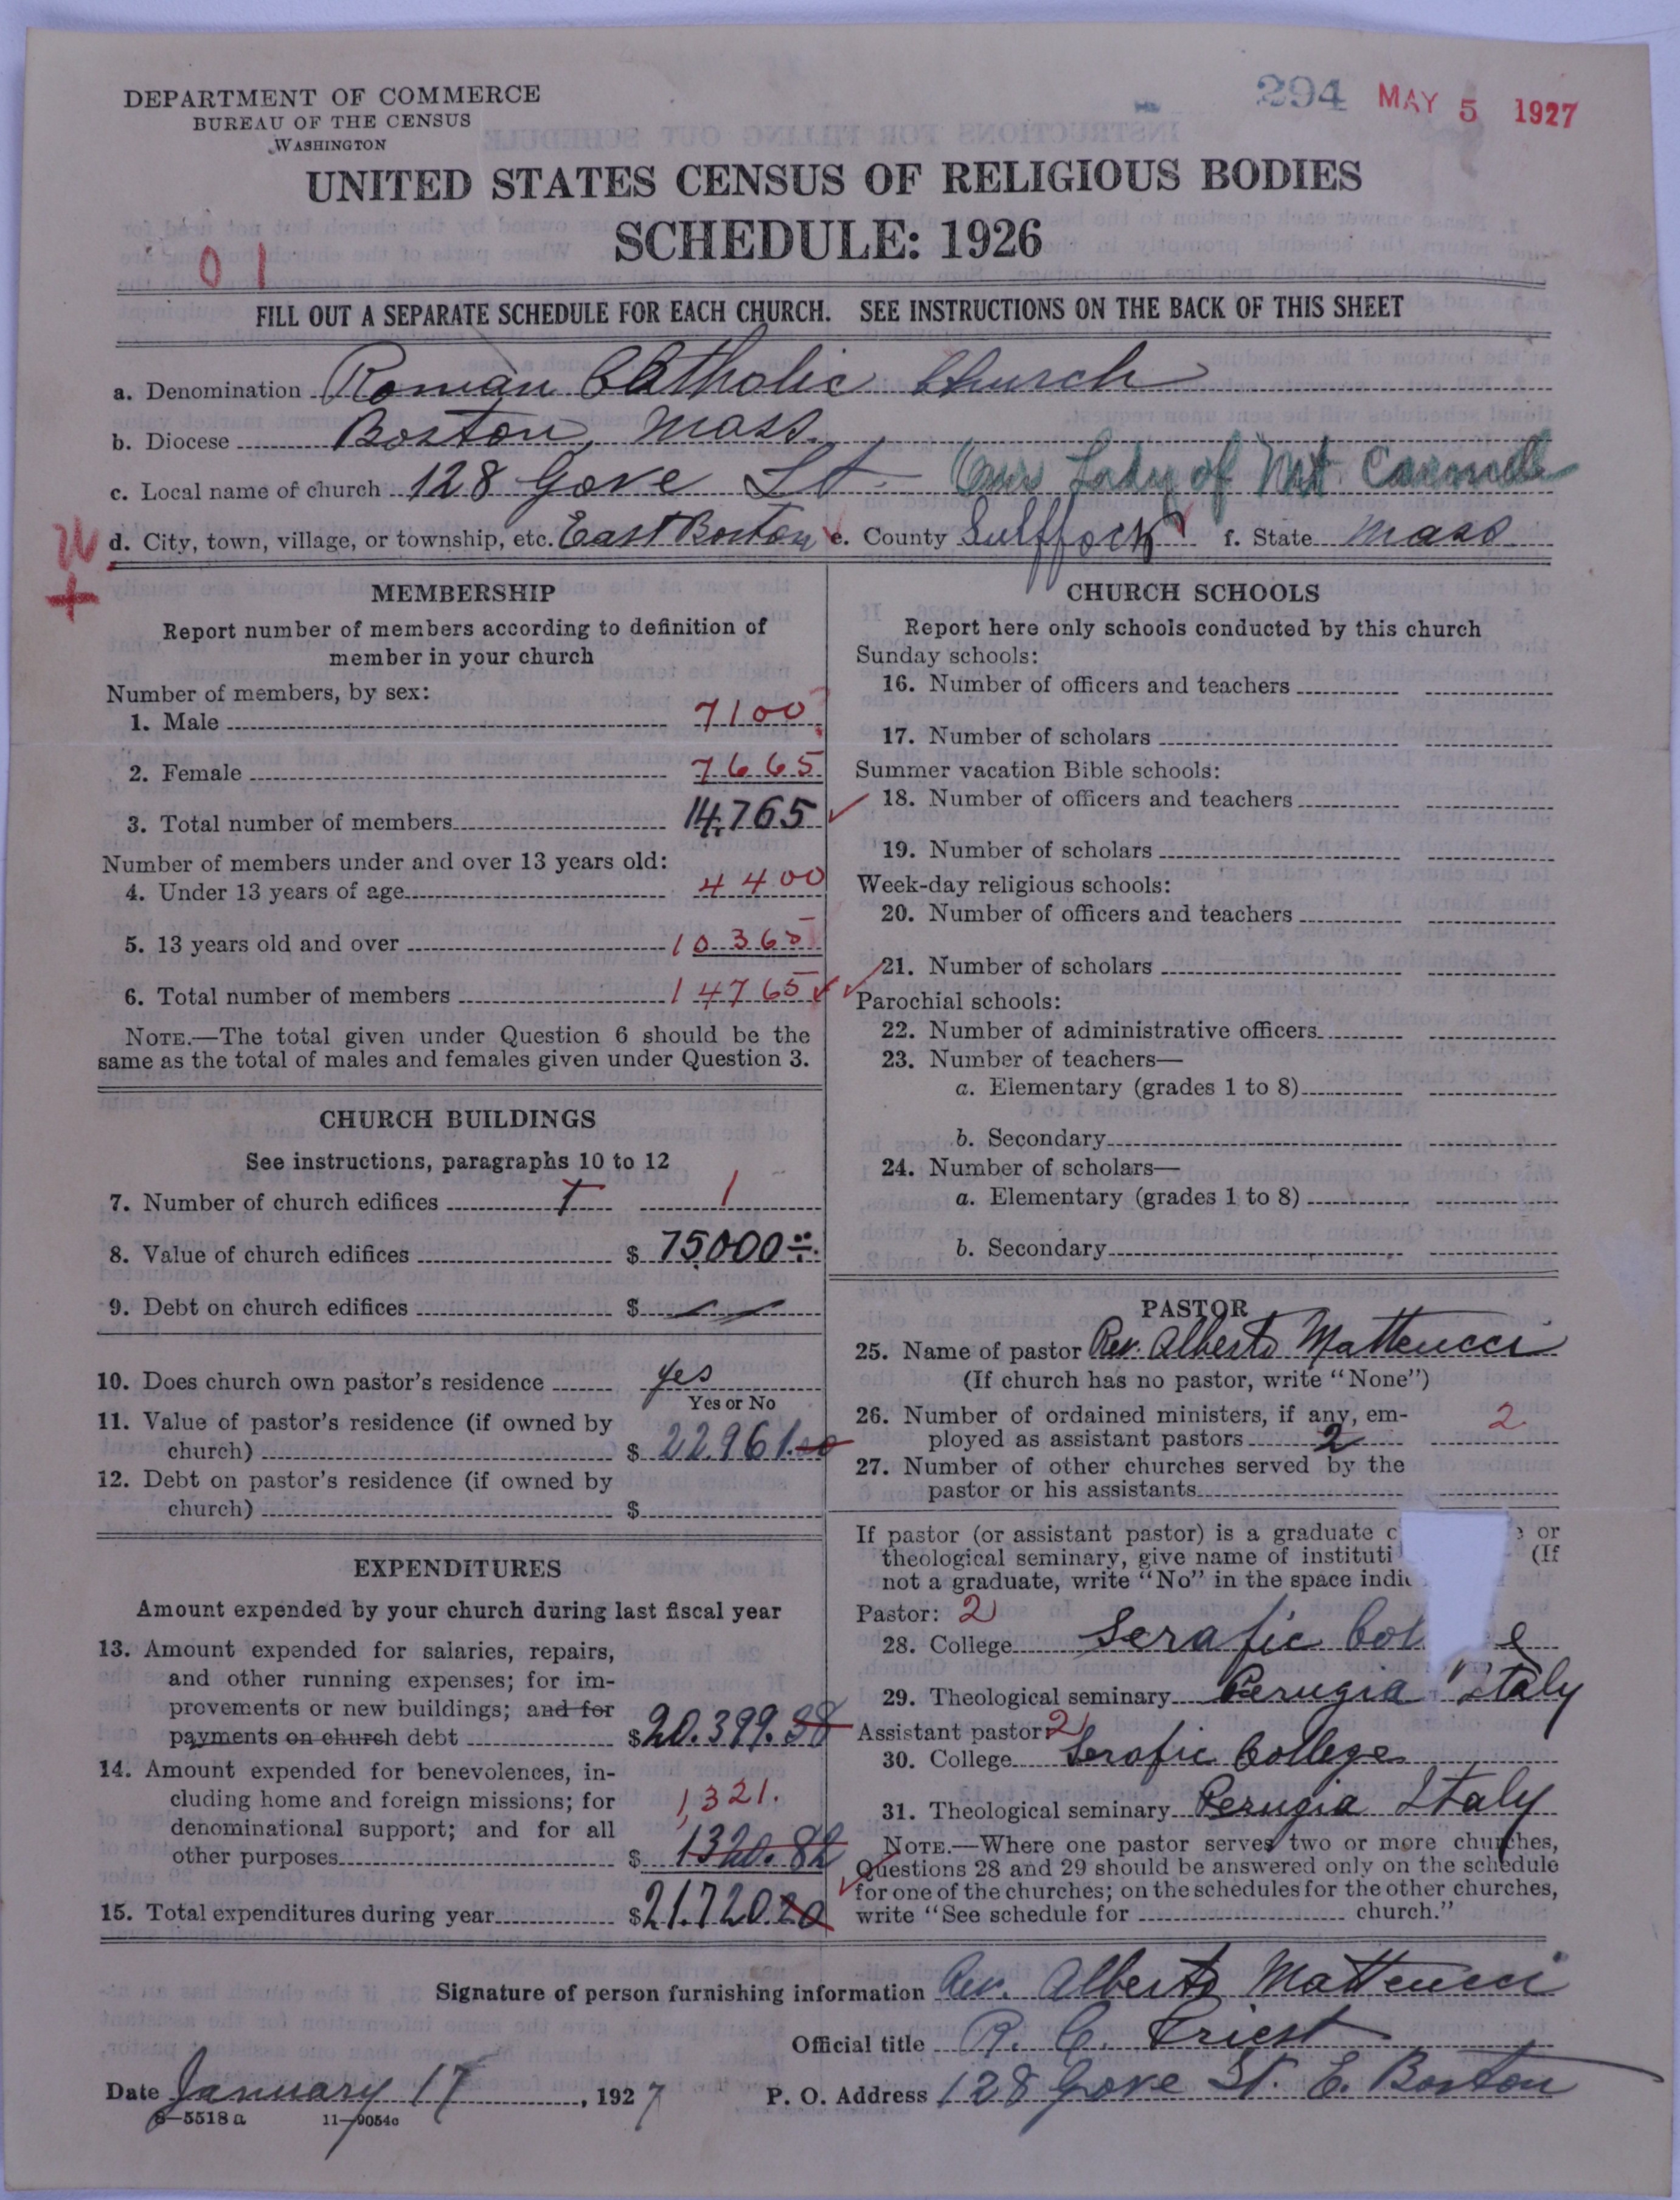 294 MAY 5 1927
DEPARTMENT OF COMMERCE
BUREAU OF THE CENSUS
WASHINGTON
UNITED STATES CENSUS OF RELIGIOUS BODIES
SCHEDULE: 1926
01
FILL OUT A SEPARATE SCHEDULE FOR EACH CHURCH. SEE INSTRUCTIONS ON THE BACK OF THIS SHEET
a. Denomination Roman Catholic Church
b. Diocese Boston, Mass.
c. Local name of church 128 Gove St - Our Lady of Mt Carmel
d. City, town, village, or township, etc. East Boston e. County Suffock f. State Mass.
MEMBERSHIP
Report number of members according to definition of
member in your church
Number of members, by sex:
1. Male 7100
2. Female 7665
3. Total number of members 14,765
Number of members under and over 13 years old:
4. Under 13 years of age 4400
5. 13 years old and over 10365
6. Total number of members 14765
NOTE.—The total given under Question 6 should be the
same as the total of males and females given under Question 3.
CHURCH BUILDINGS
See instructions, paragraphs 10 to 12
7. Number of church edifices 1 1
8. Value of church edifices $ 75.000
9. Debt on church edifices $
10. Does church own pastor's residence yes
Yes or No
11. Value of pastor's residence (if owned by
church) $ 22.961.00
12. Debt on pastor's residence (if owned by
church) $
EXPENDITURES
Amount expended by your church during last fiscal year
13. Amount expended for salaries, repairs,
and other running expenses; for im-
provements or new buildings; and for
payments on church debt $20.399.38
14. Amount expended for benevolences, in-
cluding home and foreign missions; for 1,321.
denominational support; and for all
other purposes $ 1320.82
15. Total expenditures during year $21.720.20
CHURCH SCHOOLS
Report here only schools conducted by this church
Sunday schools:
16. Number of officers and teachers
17. Number of scholars
Summer vacation Bible schools:
18. Number of officers and teachers
19. Number of scholars
Week-day religious schools:
20. Number of officers and teachers
21. Number of scholars
Parochial schools:
22. Number of administrative officers
23. Number of teachers—
a. Elementary (grades 1 to 8)
b. Secondary
24. Number of scholars—
a. Elementary (grades 1 to 8)
b. Secondary
PASTOR
25. Name of pastor Rev. Alberto Matteucci
(If church has no pastor, write "None")
26. Number of ordained ministers, if any, em-
ployed as assistant pastors 2 2
27. Number of other churches served by the
pastor or his assistants
If pastor (or assistant pastor) is a graduate c or
theological seminary, give name of instituti (If
not a graduate, write "No" in the space indic
Pastor: 2
28. College Serafic Col e
29. Theological seminary Perugia Italy
Assistant pastor: 2
30. College Serafic College
31. Theological seminary Perugia Italy
NOTE.—Where one pastor serves two or more churches,
Questions 28 and 29 should be answered only on the schedule
for one of the churches; on the schedules for the other churches,
write "See schedule for church."
Signature of person furnishing information Rev. Alberto Matteucci
Official title R. C. Priest
Date January 17, 1927 P. O. Address 128 Gove St. E. Boston
8—5518a 11—9054c